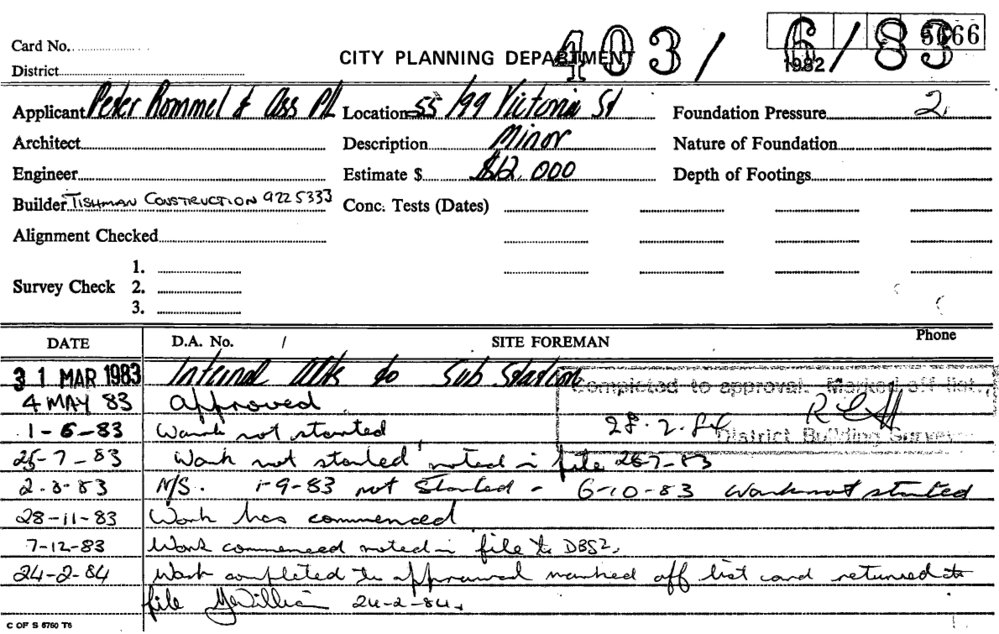 403/ 6/83
5666
1982
Card No.
CITY PLANNING DEPARTMENT
District
Applicant Peter Rommel & Ass P/L Location 55/99 Victoria St Foundation Pressure 2.
Architect Description Minor Nature of Foundation
Engineer Estimate $ $12,000 Depth of Footings
Builder TISHMAN CONSTRUCTION 922 5333 Conc. Tests (Dates)
Alignment Checked
1.
Survey Check 2.
3.
DATE D.A. No. / SITE FOREMAN Phone
31 MAR 1983 Internal Alts to Sub Station
Completed to approval. Marked off list.
4 MAY 83 approved
28.2.84
1-6-83 Work not started
District Building Surveyor
25-7-83 Work not started, noted in file 25-7-83
2-8-83 N/S. 1-9-83 not started - 6-10-83 Work not started
28-11-83 Work has commenced
7-12-83 Work commenced noted in file to DBS2.
24-2-84 Work completed to approval marked off list card returned to
file 24-2-84.
C OF S 6760 T6